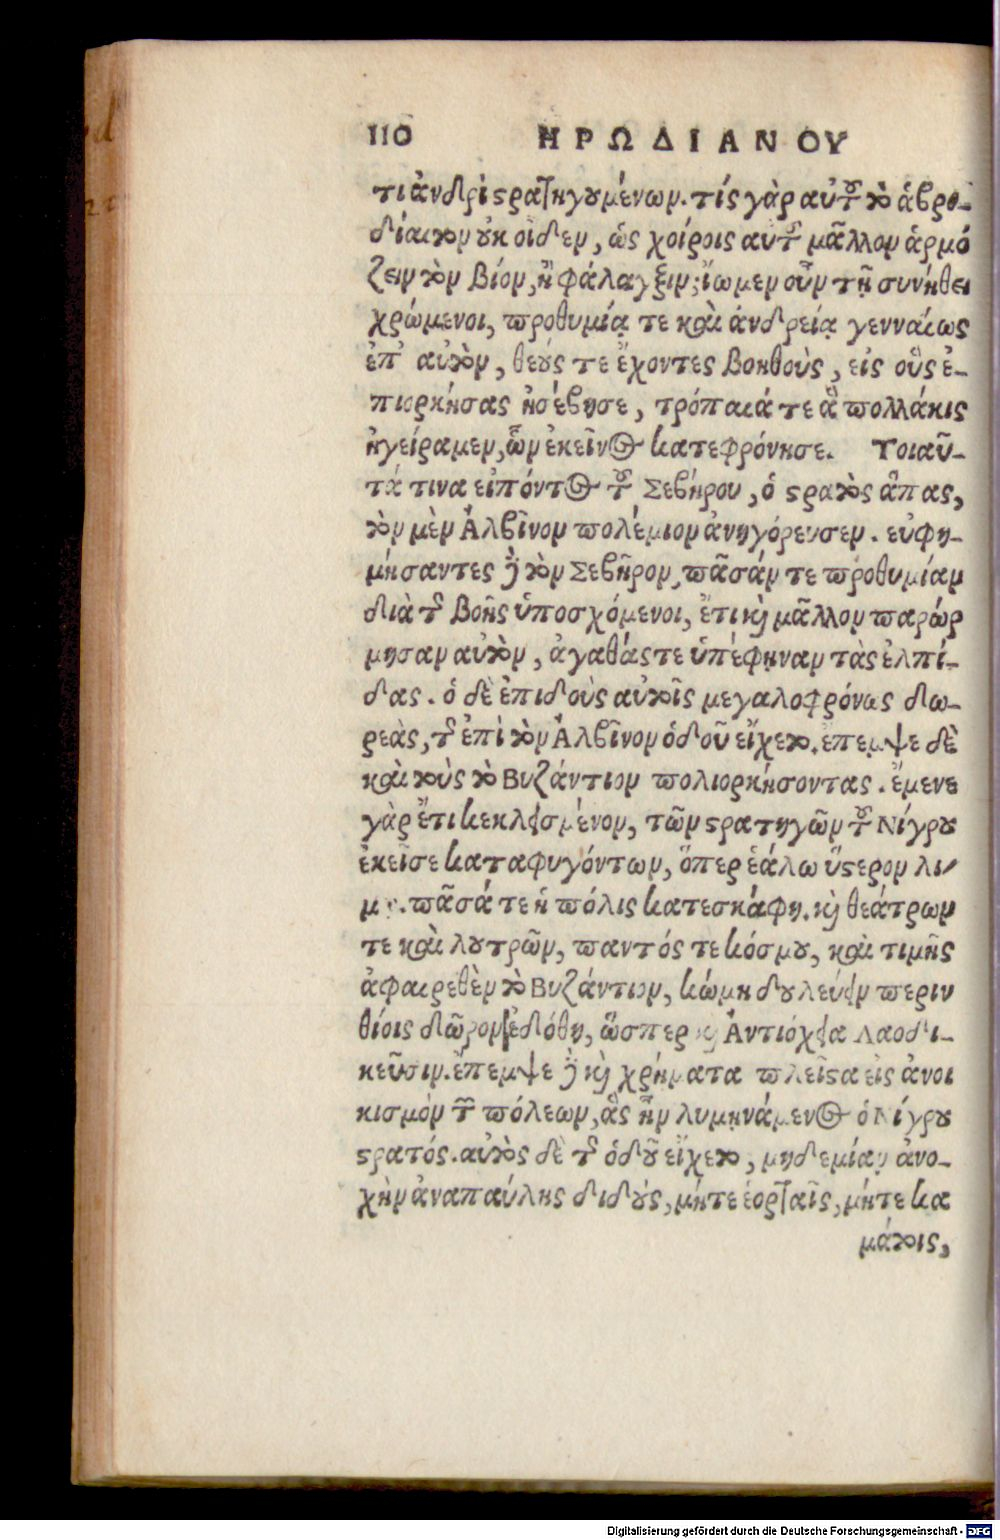 110 ΗΡΩΔΙΑΝΟΥ
τι ἀνδρὶ στρατηγουμένων. τίς γὰρ αὐτοῦ τὸ ἁβρο-
δίαιτον οὐκ οἶδεν, ὡς χοίροις αὐτοῦ μᾶλλον ἁρμό
ζειν τὸν βίον, ἢ φάλαγξιν; ἴωμεν οὖν τῇ συνήθει
χρώμενοι, προθυμίᾳ τε καὶ ἀνδρείᾳ γενναίως
ἐπ' αὐτὸν, θεούς τε ἔχοντες βοηθοὺς, εἰς οὓς ἐ-
πιορκήσας ἠσέβησε, τρόπαιά τε ἃ πολλάκις
ἠγείραμεν, ὧν ἐκεῖνος κατεφρόνησε. Τοιαῦ-
τά τινα εἰπόντος τοῦ Σεβήρου, ὁ στρατὸς ἅπας,
τὸν μὲν Ἀλβῖνον πολέμιον ἀνηγόρευσεν. εὐφη-
μήσαντες δὲ τὸν Σεβῆρον, πᾶσάν τε προθυμίαν
διὰ τῆς βοῆς ὑποσχόμενοι, ἔτι καὶ μᾶλλον παρώρ
μησαν αὐτὸν, ἀγαθάς τε ὑπέφηναν τὰς ἐλπί-
δας. ὁ δὲ ἐπιδοὺς αὐτοῖς μεγαλοφρόνως δω-
ρεὰς, τῆς ἐπὶ τὸν Ἀλβῖνον ὁδοῦ εἴχετο. ἔπεμψε δὲ
καὶ τοὺς τὸ Βυζάντιον πολιορκήσοντας. ἔμενε
γὰρ ἔτι κεκλεισμένον, τῶν στρατηγῶν τοῦ Νίγρου
ἐκεῖσε καταφυγόντων, ὅπερ ἑάλω ὕστερον λι-
μῷ. πᾶσά τε ἡ πόλις κατεσκάφη. καὶ θεάτρων
τε καὶ λουτρῶν, παντός τε κόσμου, καὶ τιμῆς
ἀφαιρεθὲν τὸ Βυζάντιον, κώμη δουλεύειν περιν
θίοις δῶρον ἐδόθη, ὥσπερ καὶ Ἀντιόχεια Λαοδι-
κεῦσιν. ἔπεμψε δὲ καὶ χρήματα πλεῖστα εἰς ἀνοι
κισμὸν τῶν πόλεων, ἃς ἦν λυμηνάμενος ὁ Νίγρου
στρατός. αὐτὸς δὲ τῆς ὁδοῦ εἴχετο, μηδεμίαν ἀνο-
χὴν ἀναπαύλης διδούς, μήτε ἑορταῖς, μήτε κα
μάτοις,
Digitalisierung gefördert durch die Deutsche Forschungsgemeinschaft - DFG